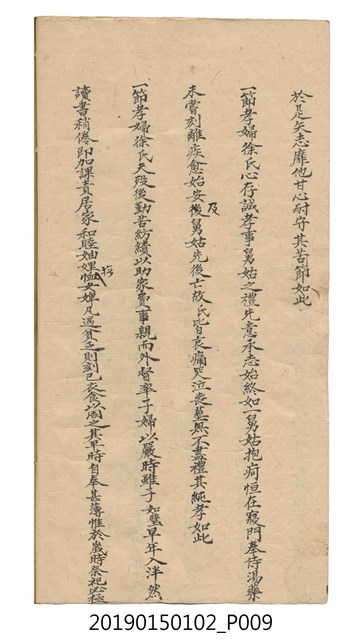 於是矢志靡他甘心耐守其苦節如此
一節孝婦徐氏心存誠孝事舅姑之禮先意承志始終如一舅姑抱疴恒在寢門奉侍湯藥
未嘗刻離疾愈始安後及舅姑先後亡故氏皆哀痛哭泣喪葬無不盡禮其純孝如此
一節孝婦徐氏夫歿後勤苦紡績以助家費事親而外督率子婦以嚴時雖子如璧早年入泮然
讀書稍倦即加課責居家和睦妯娌恤婢凡遇貧乏則刻己衣食以周之其早時自奉甚薄惟於歲時祭祀必極
20190150102_P009